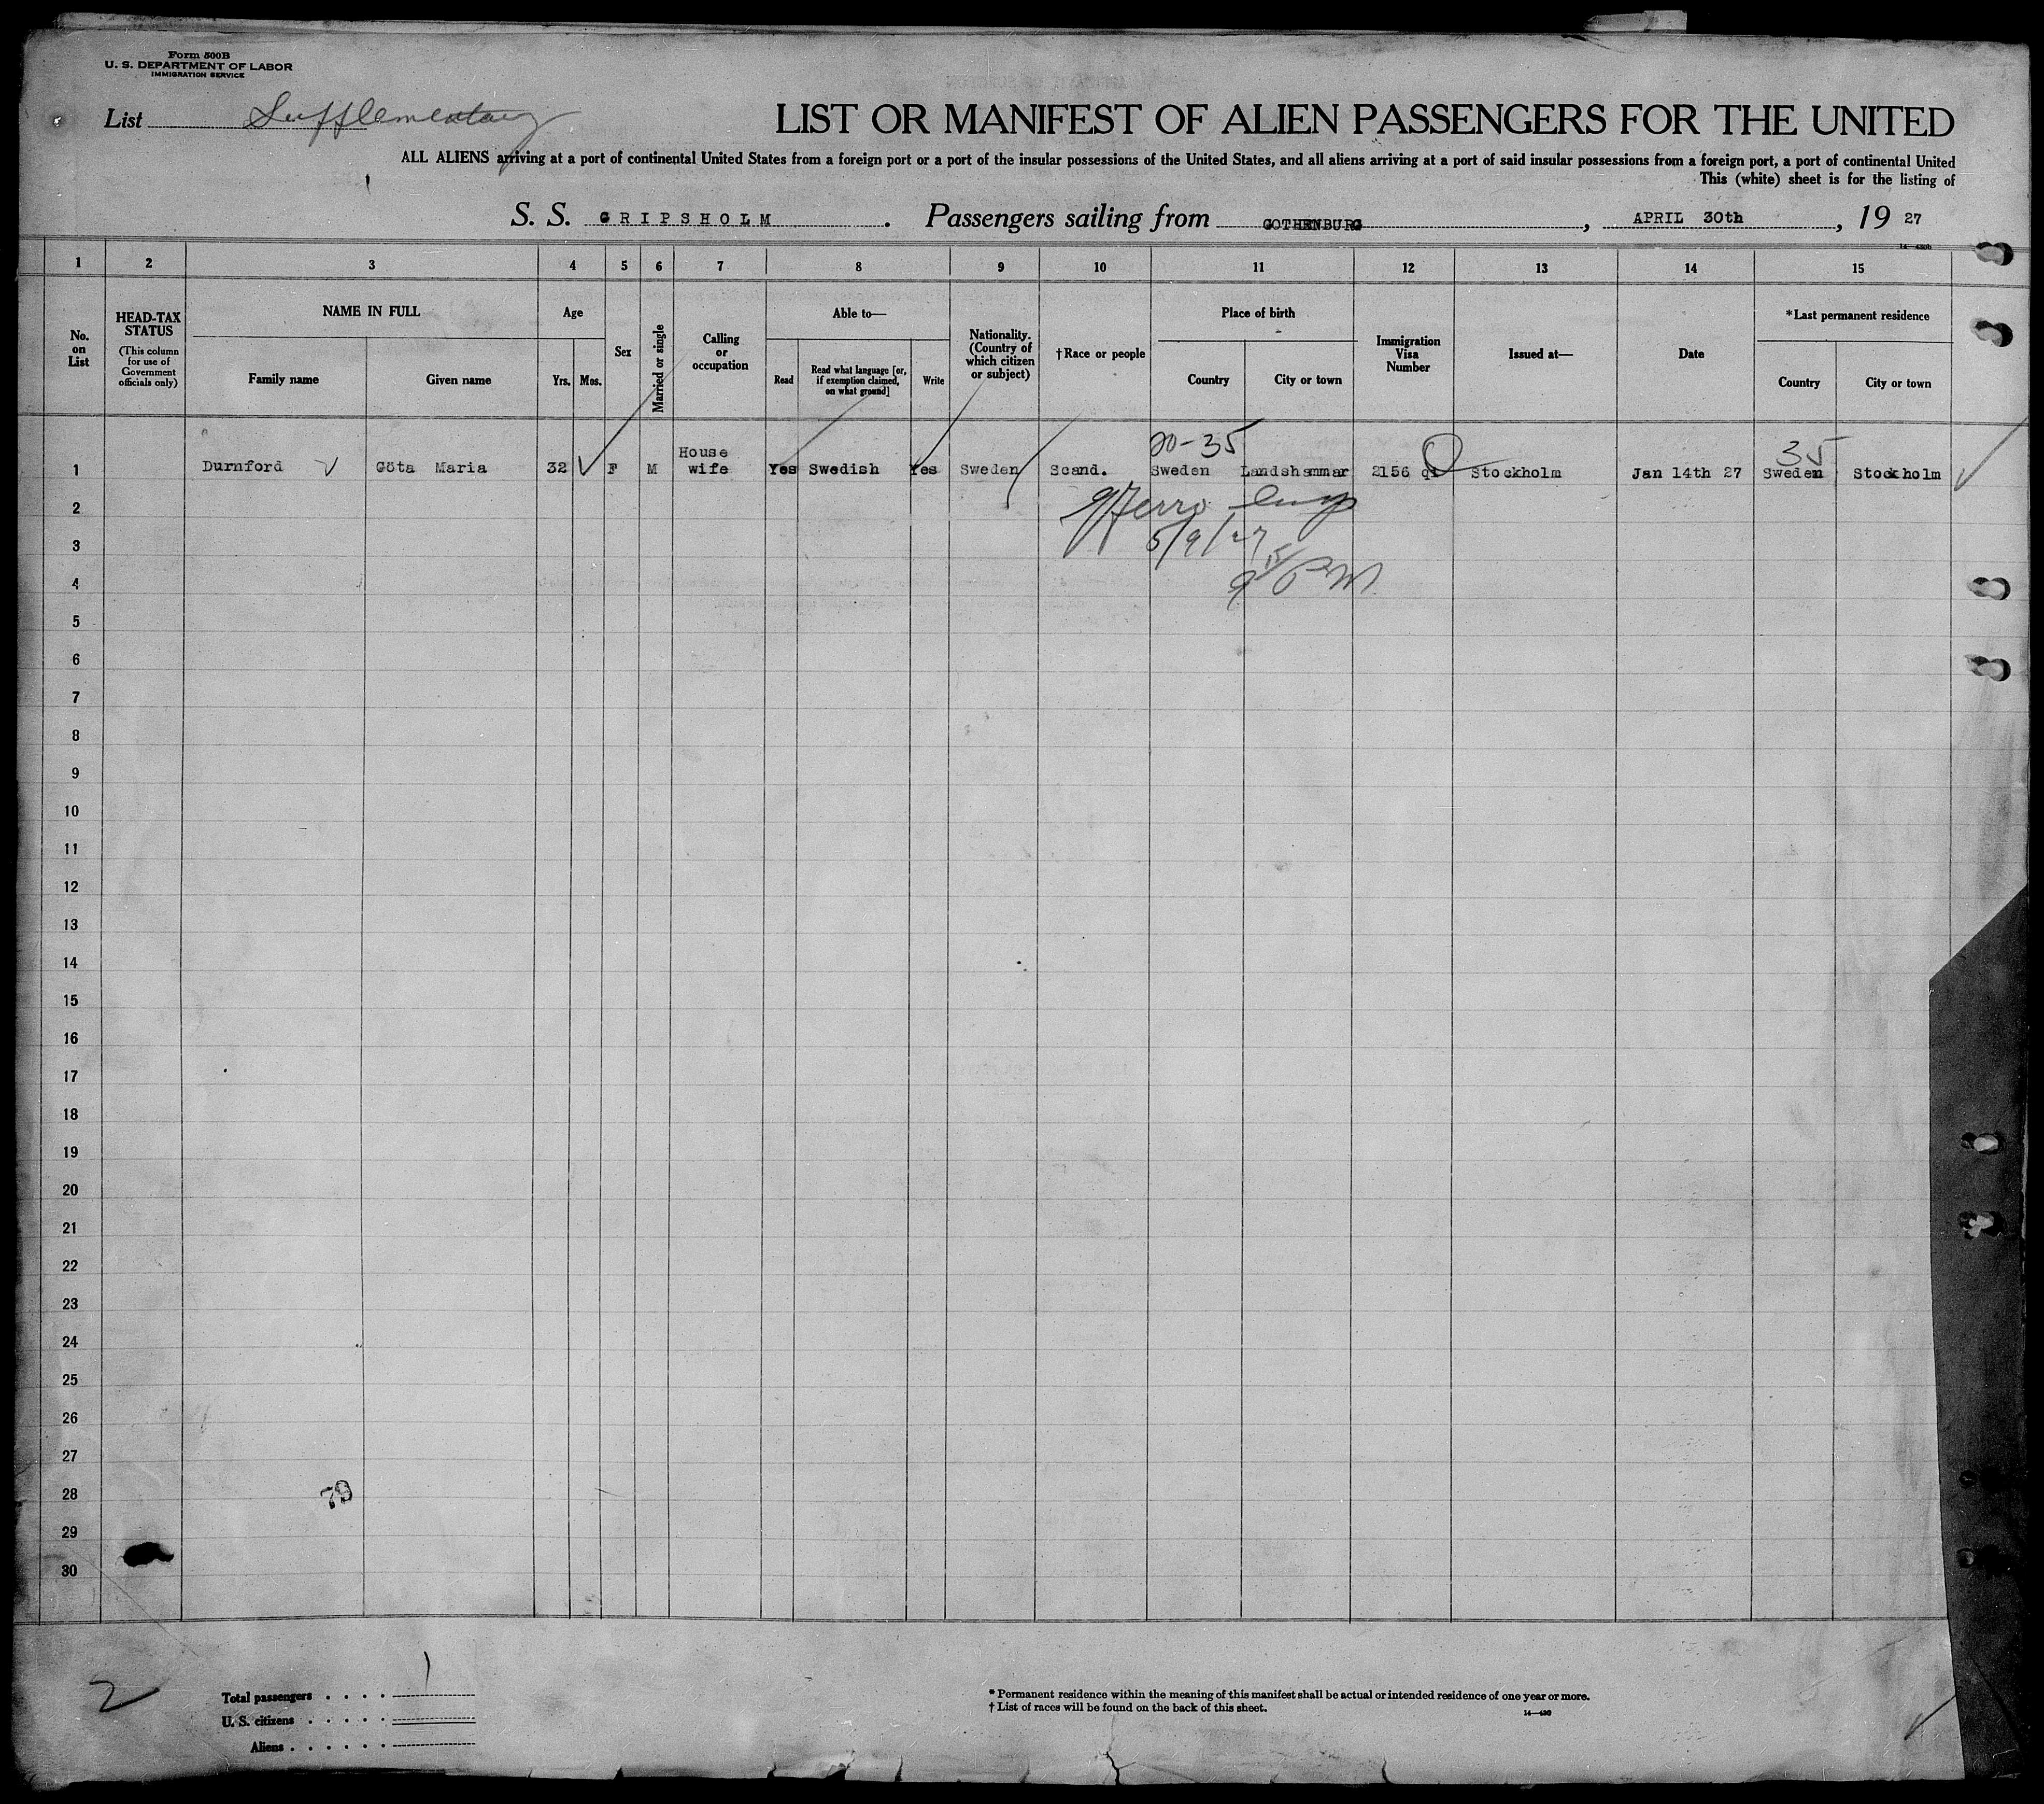 Form 500B
U. S. DEPARTMENT OF LABOR
IMMIGRATION SERVICE
List Supplementary
LIST OR MANIFEST OF ALIEN PASSENGERS FOR THE UNITED
ALL ALIENS arriving at a port of continental United States from a foreign port or a port of the insular possessions of the United States, and all aliens arriving at a port of said insular possessions from a foreign port, a port of continental United
This (white) sheet is for the listing of
S. S. GRIPSHOLM. Passengers sailing from GOTHENBURG, APRIL 30th, 19 27
1 2 3 4 5 6 7 8 9 10 11 12 13 14 15
No. on List
HEAD-TAX STATUS
(This column for use of Government officials only)
NAME IN FULL
Family name
Given name
Age
Yrs.
Mos.
Sex
Married or single
Calling or occupation
Able to—
Read
Read what language [or, if exemption claimed, on what ground]
Write
Nationality. (Country of which citizen or subject)
†Race or people
Place of birth
Country
City or town
Immigration Visa Number
Issued at—
Date
*Last permanent residence
Country
City or town
20-35
35
1 Durnford Göta Maria 32 F M House wife Yes Swedish Yes Sweden Scand. Sweden Landshammar 2156 qi Stockholm Jan 14th 27 Sweden Stockholm
2
3 5/9/27
4 9 15 PM
5
6
7
8
9
10
11
12
13
14
15
16
17
18
19
20
21
22
23
24
25
26
27
28
79
29
30
2
Total passengers . . . . 1
U. S. citizens . . . . .
Aliens . . . . . .
* Permanent residence within the meaning of this manifest shall be actual or intended residence of one year or more.
† List of races will be found on the back of this sheet.